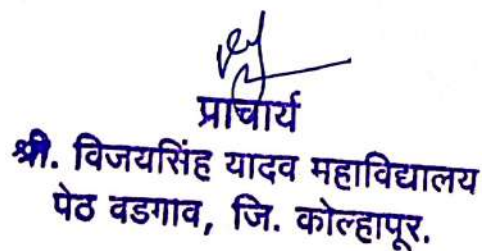 प्राचार्य
श्री. विजयसिंह यादव महाविद्यालय
पेठ वडगाव, जि. कोल्हापूर.